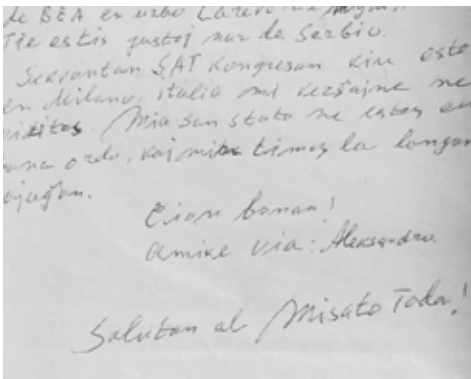 de BEA en urbo
Tie estis gastoj nur de Serbio.
Sekvantan SAT kongreson kiu estos
en Milano, Italio mi verŝajne ne
vizitos. Mia san stato ne estas en
bona ordo, kaj mi timas la longan
vojaĝon.
Ĉion bonan!
amike via: Aleksandro
Saluton al Misato Toda!